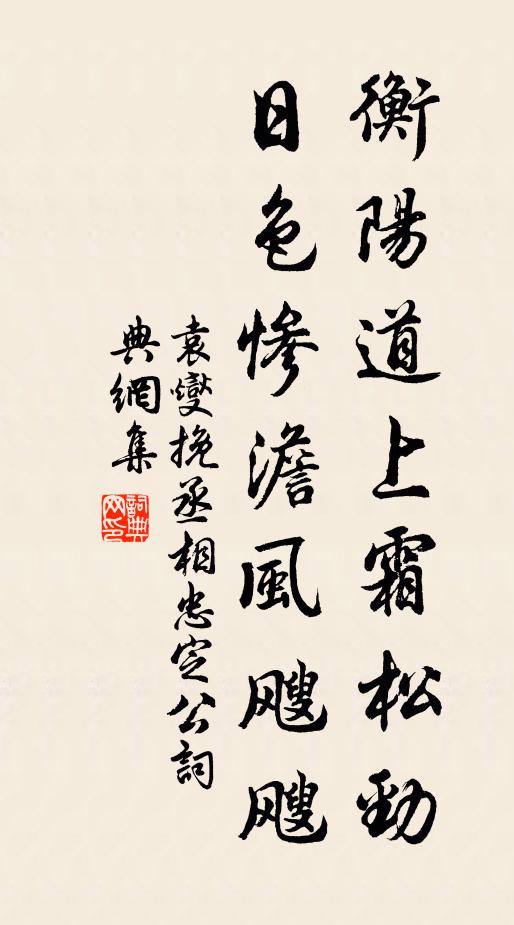 衡陽道上霜松勁
日色慘澹風颼颼
袁燮挽丞相忠定公詞
典網集
詞典網印